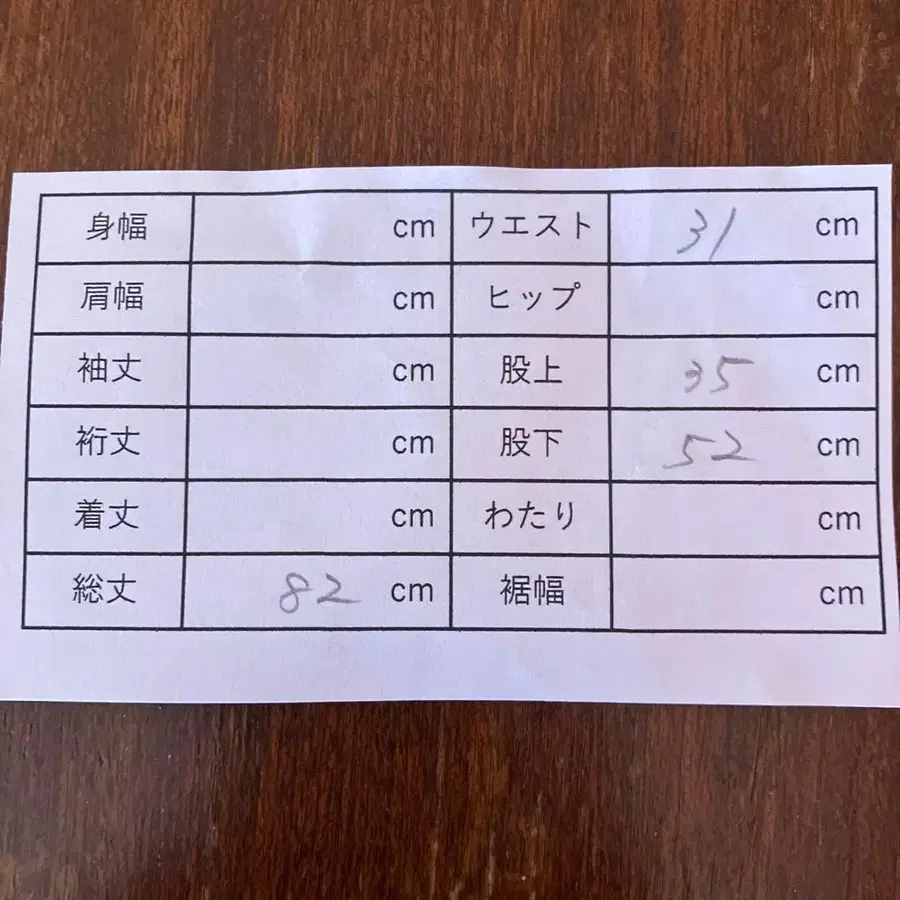 身幅 cm ウエスト 31 cm
肩幅 cm ヒップ cm
袖丈 cm 股上 35 cm
裄丈 cm 股下 52 cm
着丈 cm わたり cm
総丈 82 cm 裾幅 cm